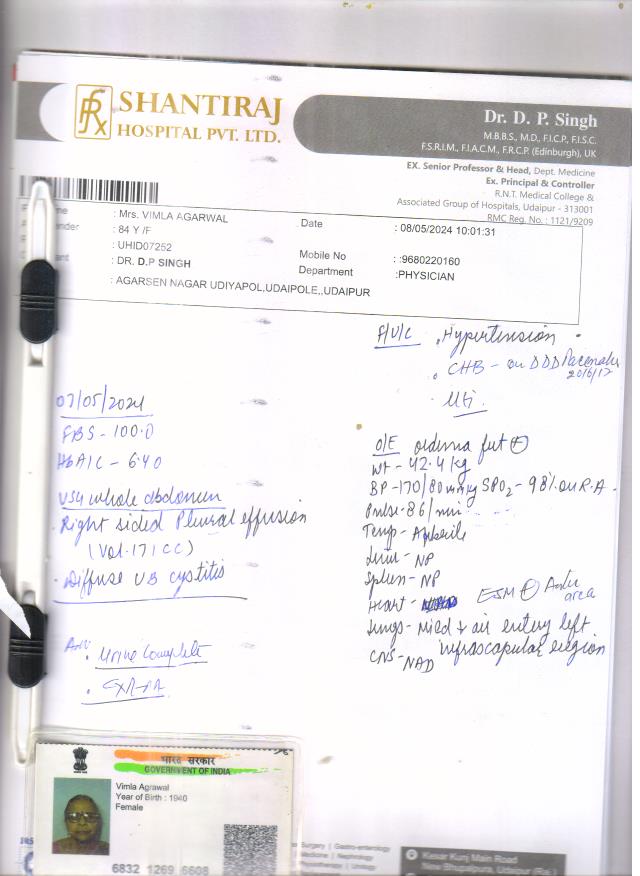 SHANTIRAJ
HOSPITAL PVT. LTD.
Dr. D. P. Singh
M.B.B.S., M.D., F.I.C.P., F.I.S.C.
F.S.R.I.M., F.I.A.C.M., F.R.C.P. (Edinburgh), UK
EX. Senior Professor & Head, Dept. Medicine
Ex. Principal & Controller
R.N.T. Medical College &
Associated Group of Hospitals, Udaipur - 313001
RMC Reg. No. : 1121/9209
: Mrs. VIMLA AGARWAL
: 84 Y /F
: UHID07252
: DR. D.P SINGH
: AGARSEN NAGAR UDIYAPOL,UDAIPOLE,,UDAIPUR
Date : 08/05/2024 10:01:31
Mobile No : :9680220160
Department :PHYSICIAN
F/U/C . Hypertension
. CHB - on DDD Pacemaker
20/6/17
07/05/2024
FBS - 100.0
HbA1C - 6.40
USG whole abdomen
. Right sided Plural effusion
(Vol. 171 CC)
. Diffuse UB cystitis
. Urine Complete
. CXR-PA
O/E oedema feet +
Wt - 42.4 kg
BP - 170/80 mmHg SPO2 - 98% on R.A.
Pulse - 86/min
Temp - Afebrile
Liver - NP
Spleen - NP
Heart - ESM +
area
Lungs - air entry left
infrascapular region
CNS - NAD
भारत सरकार
GOVERNMENT OF INDIA
Vimla Agrawal
Year of Birth : 1940
Female
6832 1269 6608
Surgery | Gastro-enterology
Medicine | Nephrology
Urology
Kesar Kunj Main Road
New Bhupalpura, Udaipur (Raj.)